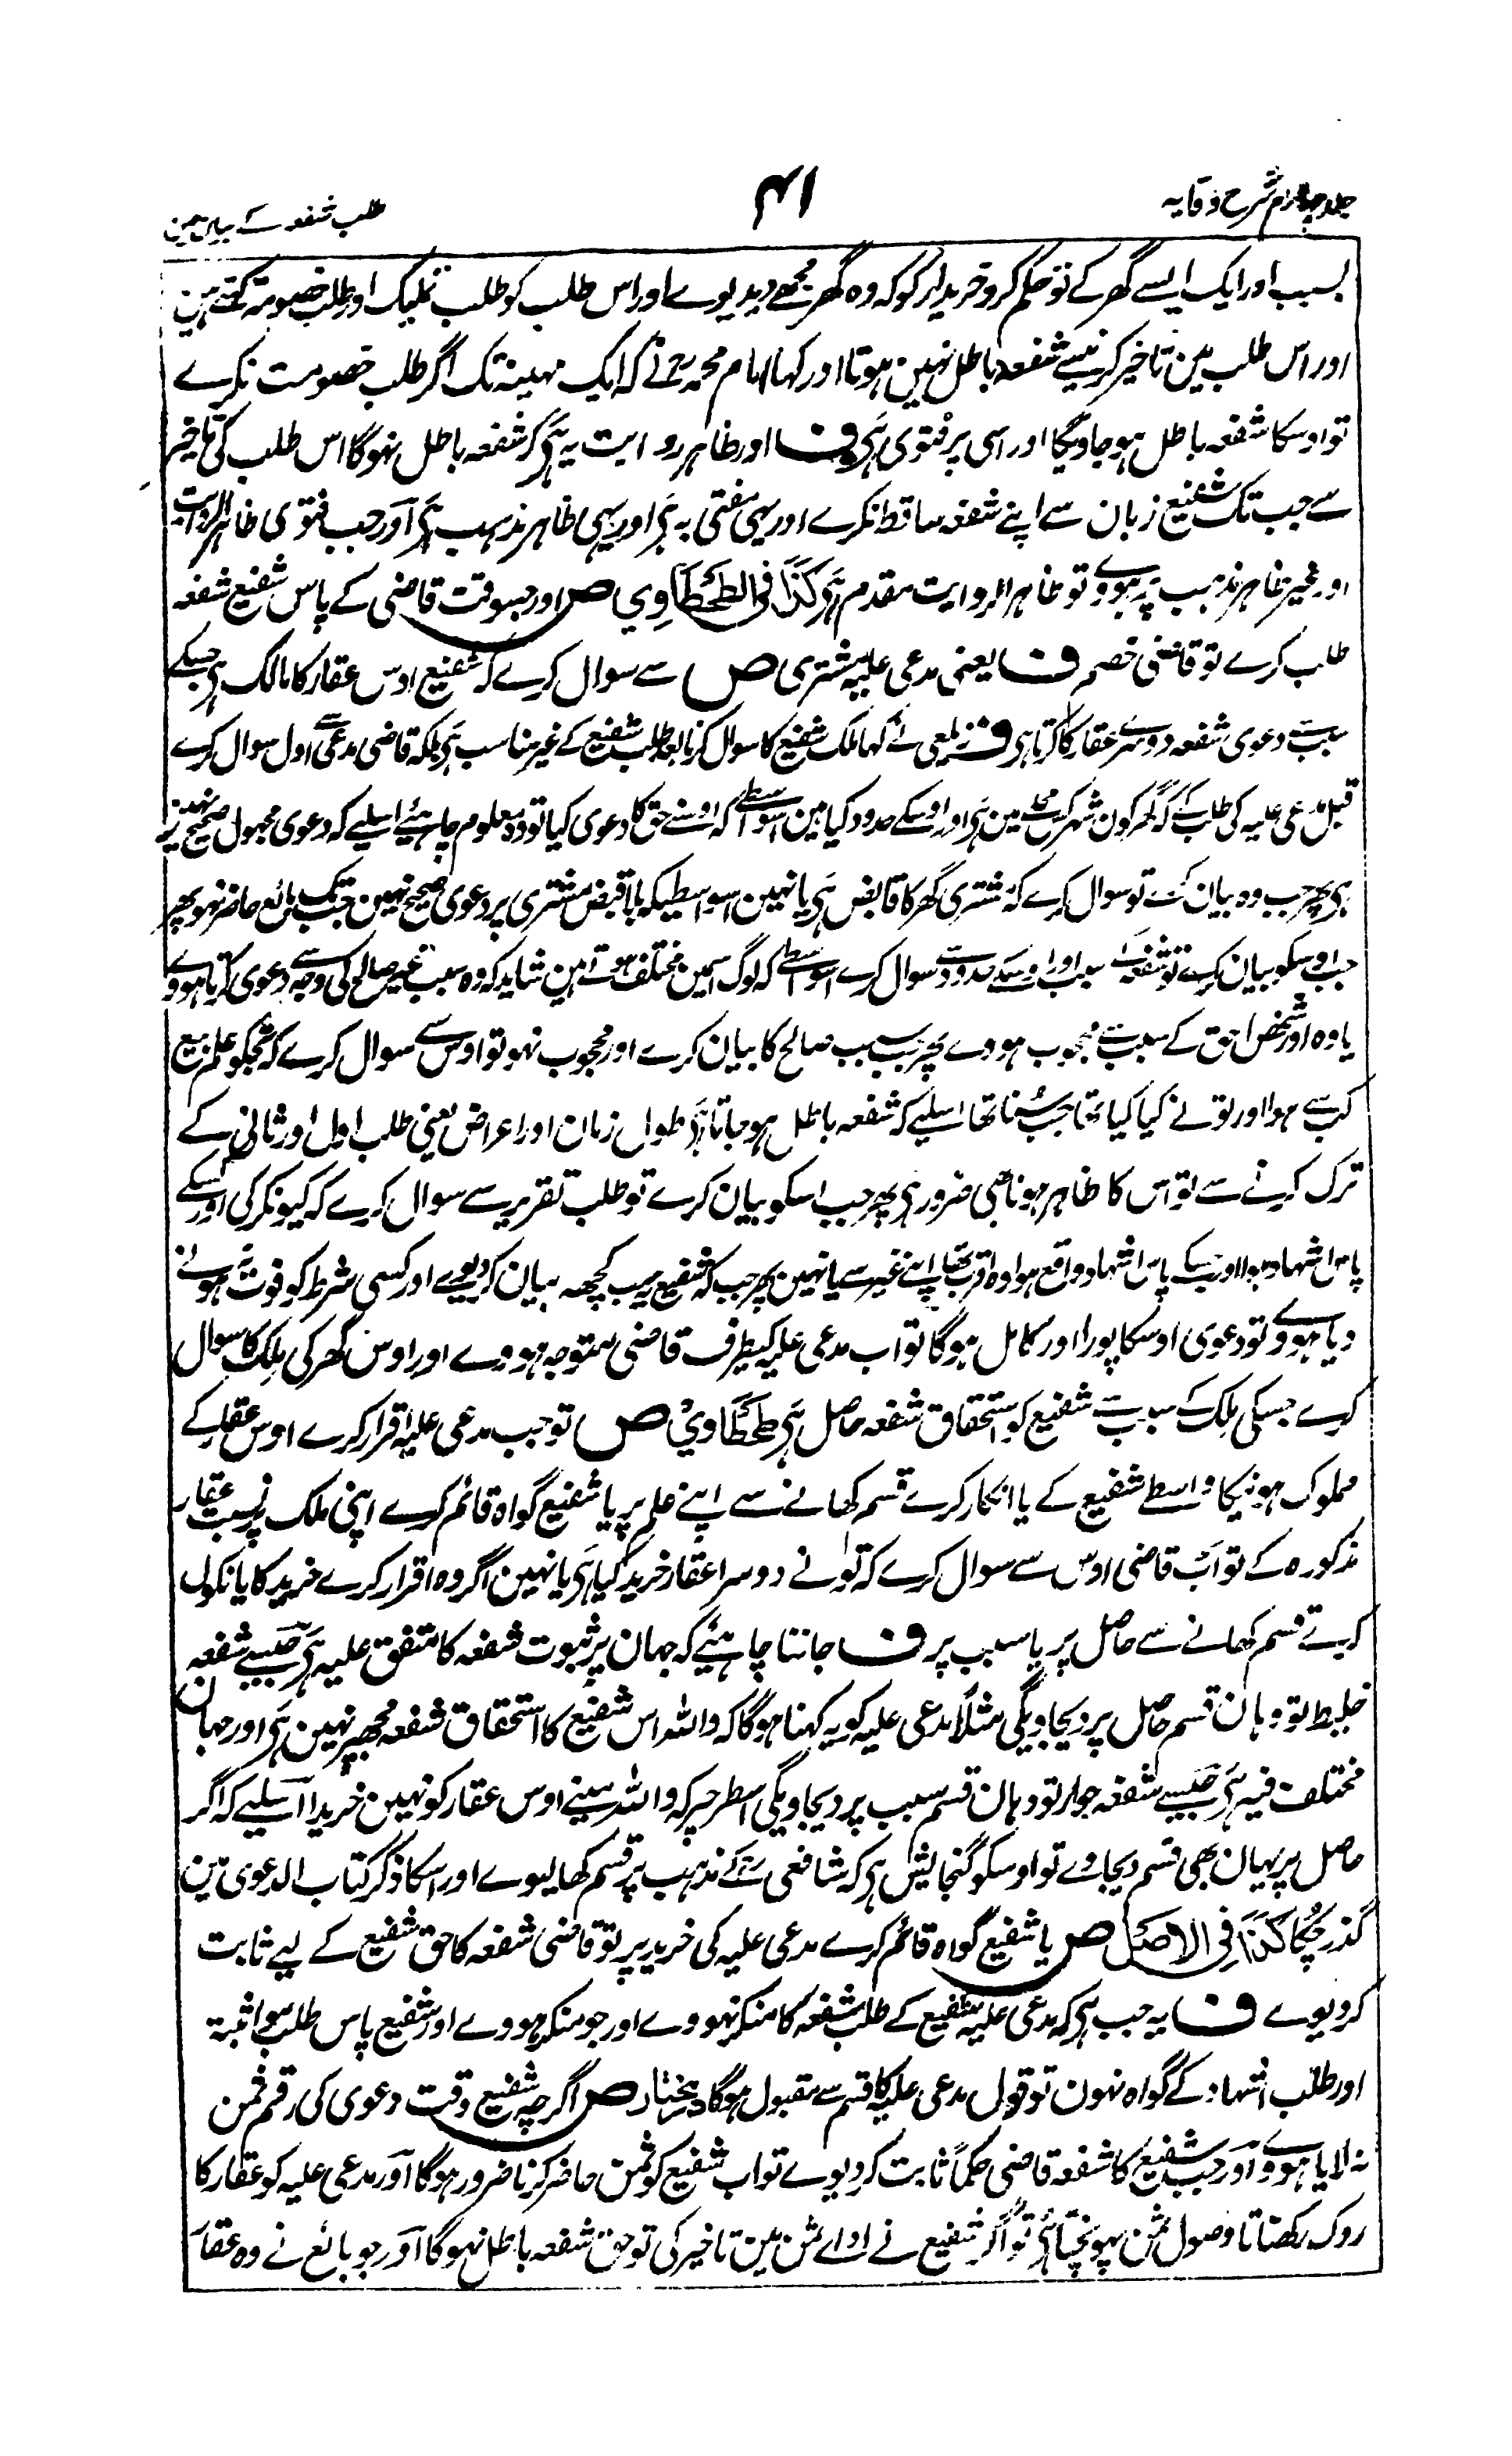 جلد چہارم شرح وقایہ
۴۱
طلب شفعہ کے بیان مین
بسبب اور ایک ایسے گھر کے تو حکم کرو خریدار کو کہ وہ گھر مجھے دیدیوے اور اس طلب کو طلب تملیک اور طلب خصومۃ کہتے ہین
اور اس طلب مین تاخیر کرنیسے شفعہ باطل نہین ہوتا اور کہا امام محمدؒ نے کہ ایک مہینہ تک اگر طلب خصومت نکرے
تو اوسکا شفعہ باطل ہو جاویگا اور اسی پر فتوی ہی ف اور ظاہر روایت یہ ہی کہ شفعہ باطل نہوگا اس طلب کی تاخیر
سے جب تک شفیع زبان سے اپنے شفعہ ساقط نکرے اور یہی مفتی بہ ہی اور یہی ظاہر مذہب ہی اور جب فتوی ظاہر الروایت
اور غیر ظاہر مذہب پر ہووے تو ظاہر الروایت مقدم ہی کَذَا فی الطَّحْطَاوِي ص اور جسوقت قاضی کے پاس شفیع شفعہ
طلب کرے تو قاضی خصم ف یعنی مدعی علیہ مشتری ص سے سوال کرے کہ شفیع اوس عقار کا مالک ہی جسکے
سبب سے دعوی شفعہ دوسرے عقار کا کرتا ہی ف زیلعی نے کہا ملک شفیع کا سوال کرنا بعد طلب شفیع کے غیر مناسب ہی بلکہ قاضی مدعی سے اول سوال کرے
قبل مدعی علیہ کی طلب کے کہ گھر کون شہر کس محلے مین ہی اور اوسکے حدود کیا ہین اسواسطے کہ اوسنے حق کا دعوی کیا تو وہ معلوم چاہئے اسلیے کہ دعوی مجہول صحیح نہین
ہی پھر جب وہ بیان کرے تو سوال کرے کہ مشتری گھر کا قابض ہی یا نہین اسواسطیکہ بلا قبض مشتری پر دعوی صحیح نہین جبتک بائع حاضر نہو پھر
جب اوسکو بیان کرے تو شفعہ کے سبب اور اوسکے حدود سے سوال کرے اسواسطے کہ لوگ اسمین مختلف ہوتے ہین شاید کہ وہ سبب غیر صالح کی وجہ سے دعوی کرتا ہووے
یا وہ اور شخص احق کے سبب سے محجوب ہووے پھر جب سبب صالح کا بیان کرے اور محجوب نہو تو اوس سے سوال کرے کہ تجھکو علم بیع
کب سے ہوا اور تو نے کیا کیا تھا جب سُنا تھا اسلیے کہ شفعہ باطل ہو جاتا ہی طول زمان اور اعراض یعنی طلب اول اور ثانی کے
ترک کرنے سے تو اس کا ظاہر ہونا بھی ضرور ہی پھر جب اسکو بیان کرے تو طلب تقریر سے سوال کرے کہ کیونکر کی اور کسکے
پاس اشہاد ہوا اور جسکے پاس اشہاد واقع ہوا وہ اقرب تھا اپنے غیر سے یا نہین پھر جب کہ شفیع یہ سب کچھہ بیان کر دیوے اور کسی شرط کو فوت نہونے
دیا ہووے تو دعوی اوسکا پورا اور کامل ہوگا تو اب مدعی علیہ کیطرف قاضی متوجہ ہووے اور اوس گھر کی مِلک کا سوال
کرے جسکی مِلک کے سبب سے شفیع کو استحقاق شفعہ حاصل ہی طَحْطَاوِيْ ص تو جب مدعی علیہ اقرار کرے اوس عقار کے
مملوک ہونیکا واسطے شفیع کے یا انکار کرے قسم کھانے سے اپنے علم پر یا شفیع گواہ قائم کرے اپنی ملک پر نسبت عقار
مذکورہ کے تو اب قاضی اوس سے سوال کرے کہ تو نے دوسرا عقار خرید کیا ہی یا نہین اگر وہ اقرار کرے خرید کا یا نکول
کرے قسم کھانے سے حاصل پر یا سبب پر ف جاننا چاہئے کہ جہان پر ثبوت شفعہ کا متفق علیہ ہی جیسے شفعہ
خلیط تو وہان قسم حاصل پر دیجاویگی مثلًا مدعی علیہ کو یہ کہنا ہوگا کہ واللہ اس شفیع کا استحقاق شفعہ مجھپر نہین ہی اور جہان
مختلف فیہ ہی جیسے شفعہ جوار تو وہان قسم سبب پر دیجاویگی اسطرحپر کہ واللہ مینے اوس عقار کو نہین خریدا اسلیے کہ اگر
حاصل پر یہان بھی قسم دیجاوے تو اوسکو گنجایش ہی کہ شافعیؒ کے مذہب پر قسم کھالیوے اور اسکا ذکر کتاب الدعوی مین
گذر چُکا کَذَا فِی الاصل ص یا شفیع گواہ قائم کرے مدعی علیہ کی خرید پر تو قاضی شفعہ کا حق شفیع کے لیے ثابت
کر دیوے ف یہ جب ہی کہ مدعی علیہ شفیع کے طلب شفعہ کا منکر نہووے اور جو منکر ہووے اور شفیع پاس طلب مواثبۃ
اور طلب اشہاد کے گواہ نہون تو قول مدعی علیہ کا قسم سے مقبول ہوگا درمختار ص اگرچہ شفیع وقت دعوی کی رقم ثمن
نہ لایا ہووے اور جب شفیع کا شفعہ قاضی حکماً ثابت کر دیوے تو اب شفیع کو ثمن حاضر کرنا ضرور ہوگا اور مدعی علیہ کو عقار کا
روک رکھنا تا وصول ثمن پہونچتا ہی تو اگر شفیع نے ادائے ثمن مین تاخیر کی تو حق شفعہ باطل نہوگا اور جو بائع نے وہ عقار